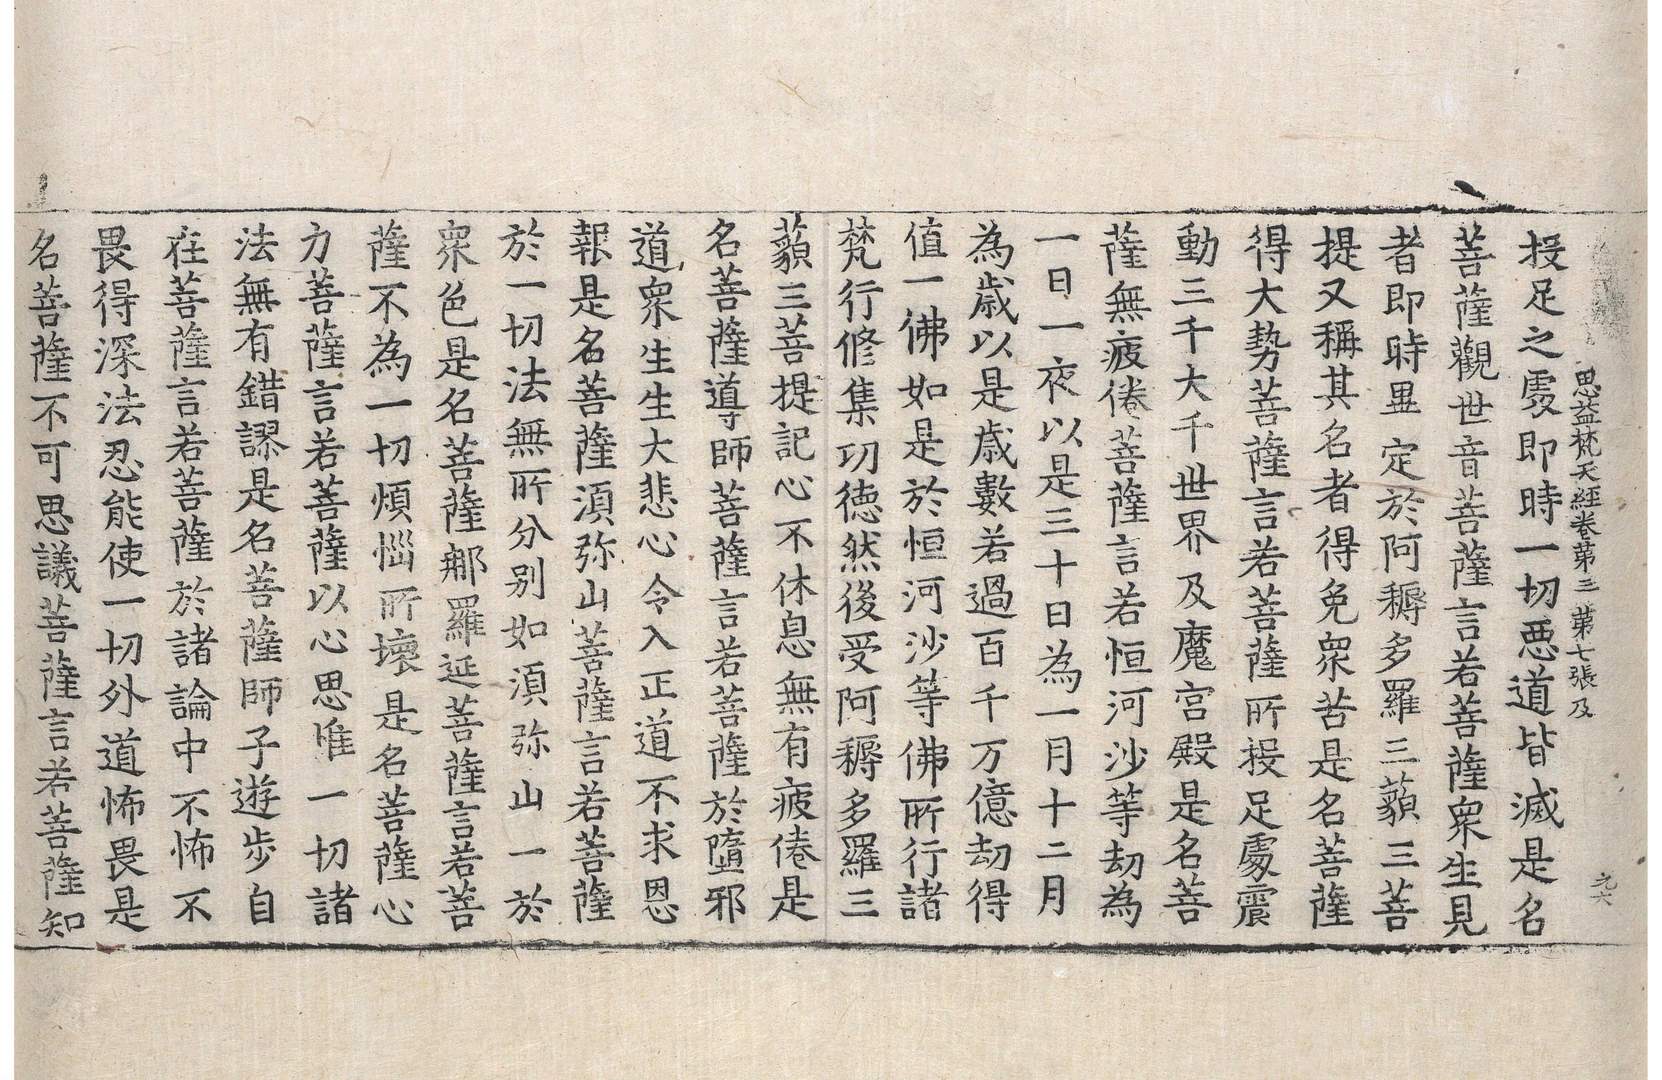 思益梵天經卷第三 第七張 及
投足之處即時一切惡道皆滅是名
菩薩觀世音菩薩言若菩薩衆生見
者即時畢定於阿耨多羅三藐三菩
提又稱其名者得免衆苦是名菩薩
得大勢菩薩言若菩薩所投足處震
動三千大千世界及魔宫殿是名菩
薩無疲倦菩薩言若恒河沙等劫為
一日一夜以是三十日為一月十二月
為歲以是歲數若過百千万億劫得
值一佛如是於恒河沙等佛所行諸
梵行修集功德然後受阿耨多羅三
藐三菩提記心不休息無有疲倦是
名菩薩導師菩薩言若菩薩於墮邪
道衆生生大悲心令入正道不求恩
報是名菩薩須弥山菩薩言若菩薩
於一切法無所分別如須弥山一於
衆色是名菩薩那羅延菩薩言若菩
薩不為一切煩惱所壞是名菩薩心
力菩薩言若菩薩以心思惟一切諸
法無有錯謬是名菩薩師子遊步自
在菩薩言若菩薩於諸論中不怖不
畏得深法忍能使一切外道怖畏是
名菩薩不可思議菩薩言若菩薩知